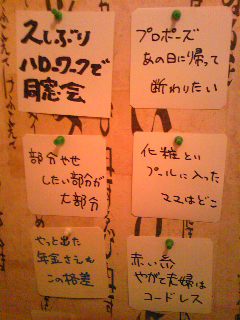 久しぶり
ハローワークで
同窓会
プロポーズ
あの日に帰って
断わりたい
部分やせ
したい部分が
大部分
化粧とい
プールに入った
ママはどこ
やっと出た
年金さえも
この格差
赤い糸
やがて夫婦は
コードレス